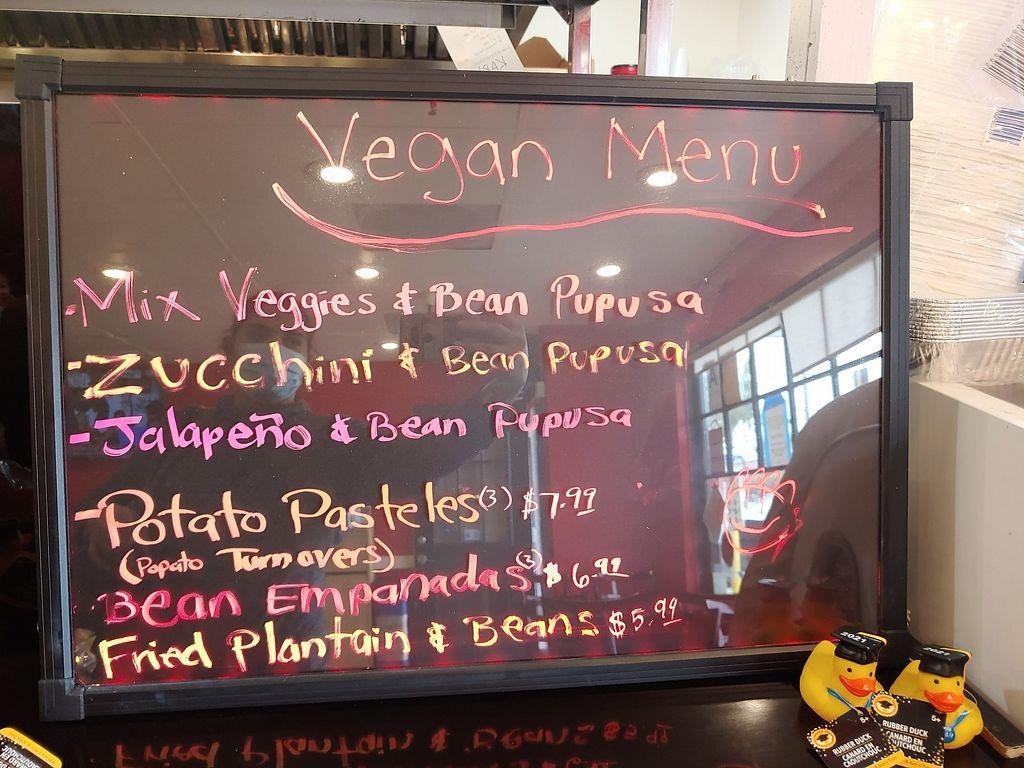 Vegan Menu
- Mix Veggies & Bean Pupusa
- Zucchini & Bean Pupusa
- Jalapeño & Bean Pupusa
- Potato Pasteles (3) $7.99
(Popato Turnovers)
Bean Empanadas (2) $6.99
Fried Plantain & Beans $5.99
2021
2021
5+
RUBBER DUCK
CANARD EN
CAOUTCHOUC
5+
RUBBER DUCK
CANARD EN
CAOUTCHOUC